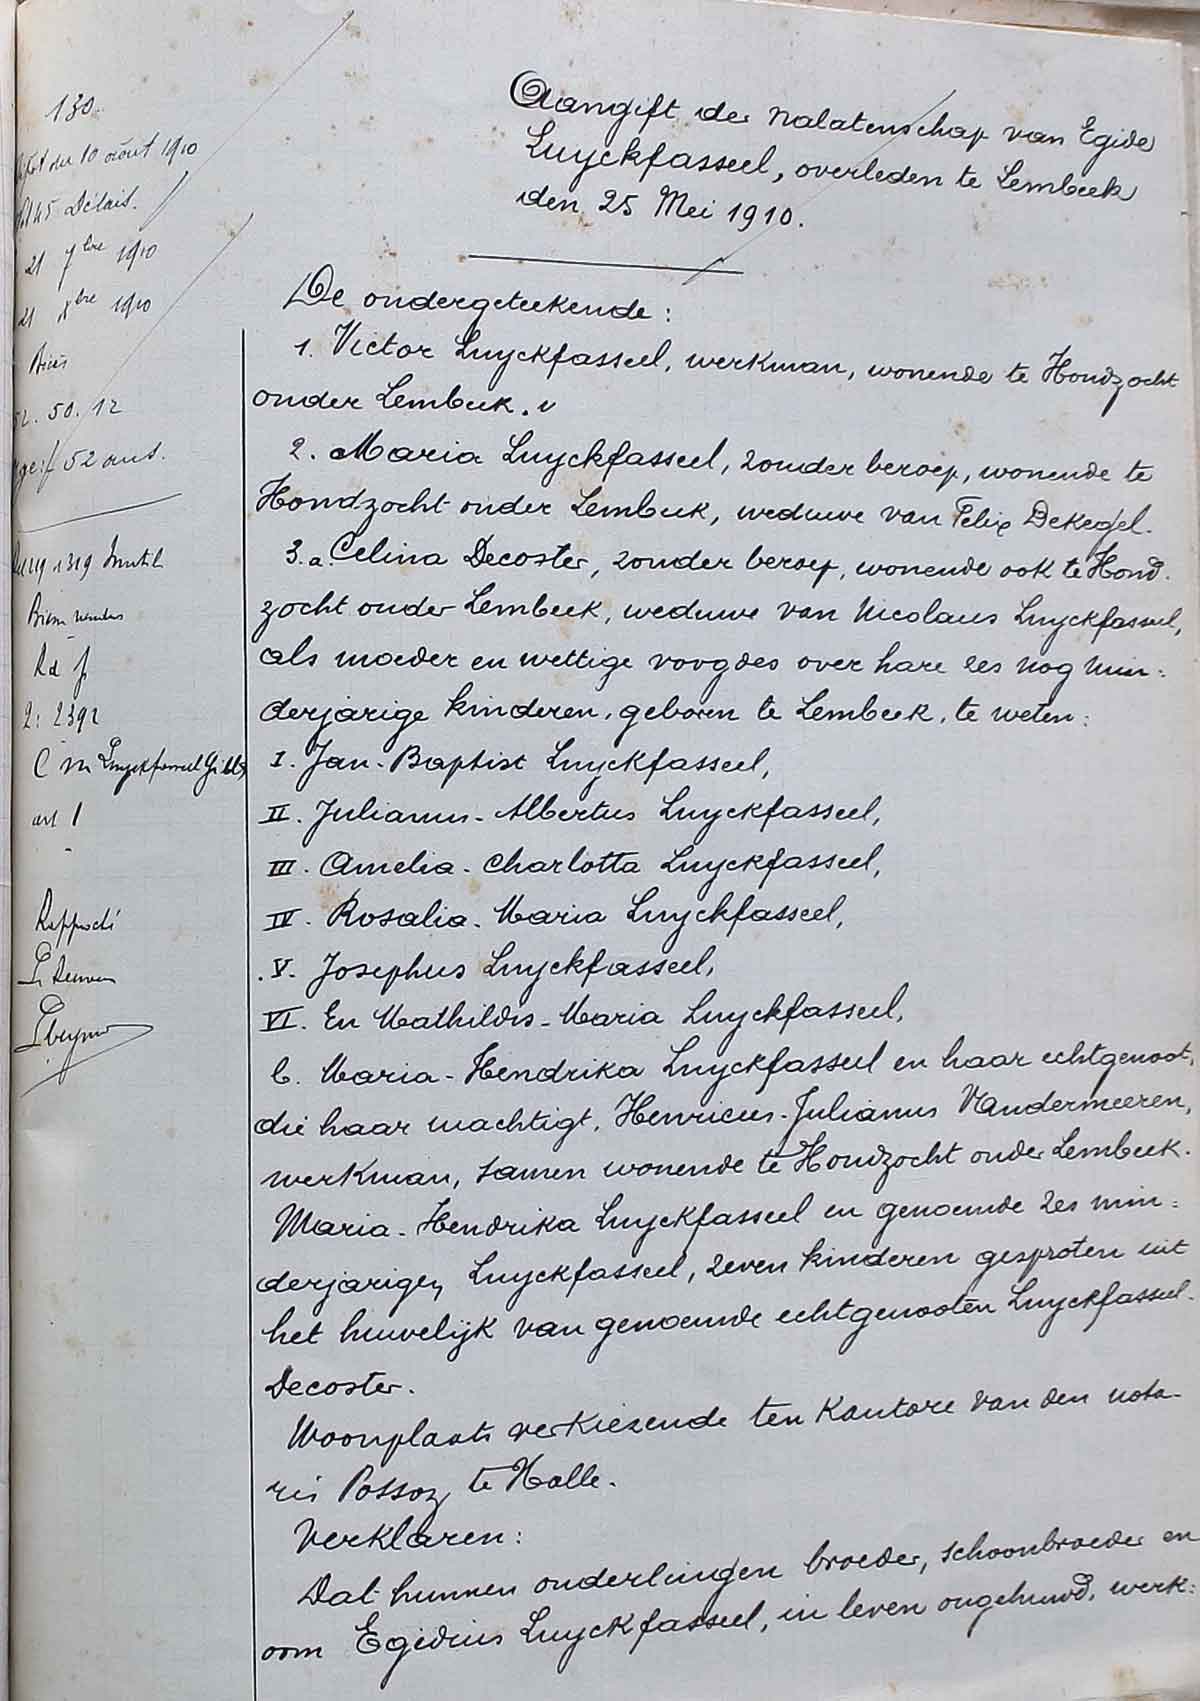 130
du 10 août 1910
Délais.
21 7bre 1910
21 xbre 1910
50.12
52 ans.
1319
Rd f
2392
art 1
Aangift der nalatenschap van Egide
Luyckfasseel, overleden te Lembeek
den 25 Mei 1910.
De ondergeteekende:
1. Victor Luyckfasseel, werkman, wonende te Hondzocht
onder Lembeek.
2. Maria Luyckfasseel, zonder beroep, wonende te
Hondzocht onder Lembeek, weduwe van Felix Dekegel.
3. a. Celina Decoster, zonder beroep, wonende ook te Hond-
zocht onder Lembeek, weduwe van Nicolaus Luyckfasseel,
als moeder en wettige voogdes over hare zes nog min-
derjarige kinderen, geboren te Lembeek, te weten:
I. Jan-Baptist Luyckfasseel,
II. Julianus-Albertus Luyckfasseel,
III. Amelia-Charlotta Luyckfasseel,
IV. Rosalia-Maria Luyckfasseel,
V. Josephus Luyckfasseel,
VI. En Mathildis-Maria Luyckfasseel,
b. Maria-Hendrika Luyckfasseel en haar echtgenoot,
die haar machtigt, Henricus-Julianus Vandermeeren,
werkman, samen wonende te Hondzocht onder Lembeek.
Maria-Hendrika Luyckfasseel en genoemde zes min-
derjarigen Luyckfasseel, zeven kinderen gesproten uit
het huwelijk van genoemde echtgenooten Luyckfasseel-
Decoster.
Woonplaats verkiezende ten kantore van den nota-
ris Possoz te Halle.
Verklaren:
Dat hunnen onderlingen broeder, schoonbroeder en
oom Egidius Luyckfasseel, in leven ongehuwd, werk-